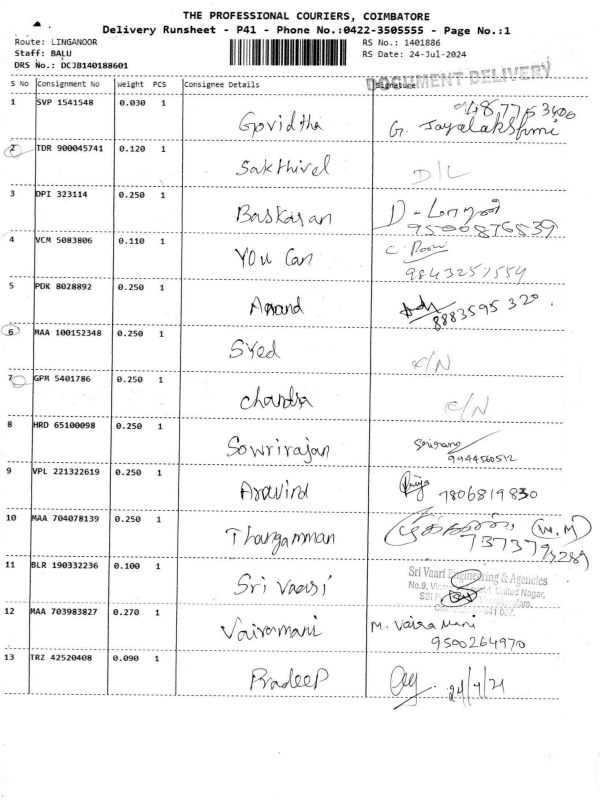 THE PROFESSIONAL COURIERS, COIMBATORE
Delivery Runsheet - P41 - Phone No.:0422-3505555 - Page No.:1
Route: LINGANOOR RS No.: 1401886
Staff: BALU RS Date: 24-Jul-2024
DRS No.: DCJB140188601
DOCUMENT DELIVERY
S No Consignment No Weight PCS Consignee Details Signature
1 SVP 1541548 0.030 1 Govidtha G. Jayalakshmi
2 TDR 900045741 0.120 1 Sakthivel D/L
3 DPI 323114 0.250 1 Baskaran
9500876539
4 VCM 5083806 0.110 1 You Can
9843257554
5 PDK 8028892 0.250 1 Anand
8883595320
6 MAA 100152348 0.250 1 Syed C/N
7 GPM 5401786 0.250 1 Chandra C/N
8 HRD 65100098 0.250 1 Sowrirajan
9944560512
9 VPL 221322619 0.250 1 Aravind Priya 7806819830
10 MAA 704078139 0.250 1 Thangamman (W.M)
11 BLR 190332236 0.100 1 Sri Vaari
Sri Vaari Engineering & Agencies
United Nagar,
12 MAA 703983827 0.270 1 Vairamani M. Vaira Mani
9500264970
13 TRZ 42520408 0.090 1 Pradeep 24/7/24